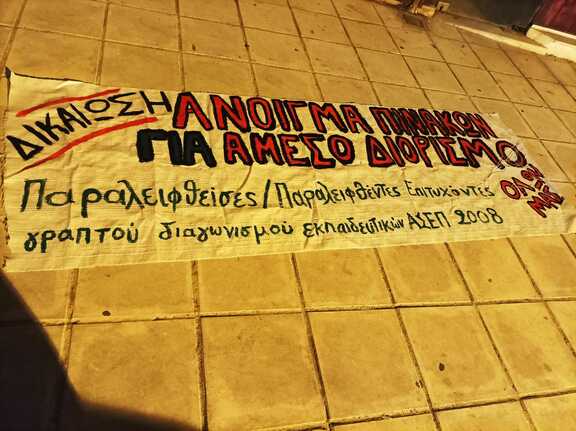 ΔΙΚΑΙΩΣΗ
ΑΝΟΙΓΜΑ ΠΙΝΑΚΩΝ
ΓΙΑ ΑΜΕΣΟ ΔΙΟΡΙΣΜΟ
ΟΛΩΝ
ΜΑΣ
Παραλειφθείσες/Παραλειφθέντες Επιτυχόντες
γραπτού διαγωνισμού εκπαιδευτικών ΑΣΕΠ 2008